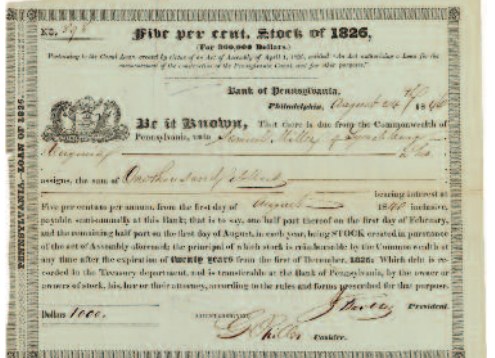 No. 898
Five per cent. Stock of 1826,
(For 300,000 Dollars.)
Pertaining to the Canal Loan, created by virtue of an Act of Assembly of April 1, 1826, entitled "An Act authorizing a Loan for the
commencement of the construction of the Pennsylvania Canal, and for other purposes."
Bank of Pennsylvania,
Philadelphia, August 24th 1840
Be it Known, That there is due from the Commonwealth of
Pennsylvania, unto Samuel Miller of Lynchburg
Virginia or his
assigns, the sum of One thousand Dollars
bearing interest at
Five per cent per annum, from the first day of August 1840 inclusive,
payable semi-annually at this Bank; that is to say, one half part thereof on the first day of February,
and the remaining half part on the first day of August, in each year, being STOCK created in pursuance
of the act of Assembly aforesaid; the principal of which stock is reimbursable by the Commonwealth at
any time after the expiration of twenty years from the first of December, 1826: Which debt is re-
corded in the Treasury department, and is transferable at the Bank of Pennsylvania, by the owner or
owners of stock, his, her or their attorney, according to the rules and forms prescribed for that purpose.
President.
Dollars 1000.
Cashier.
PENNSYLVANIA LOAN OF 1826.